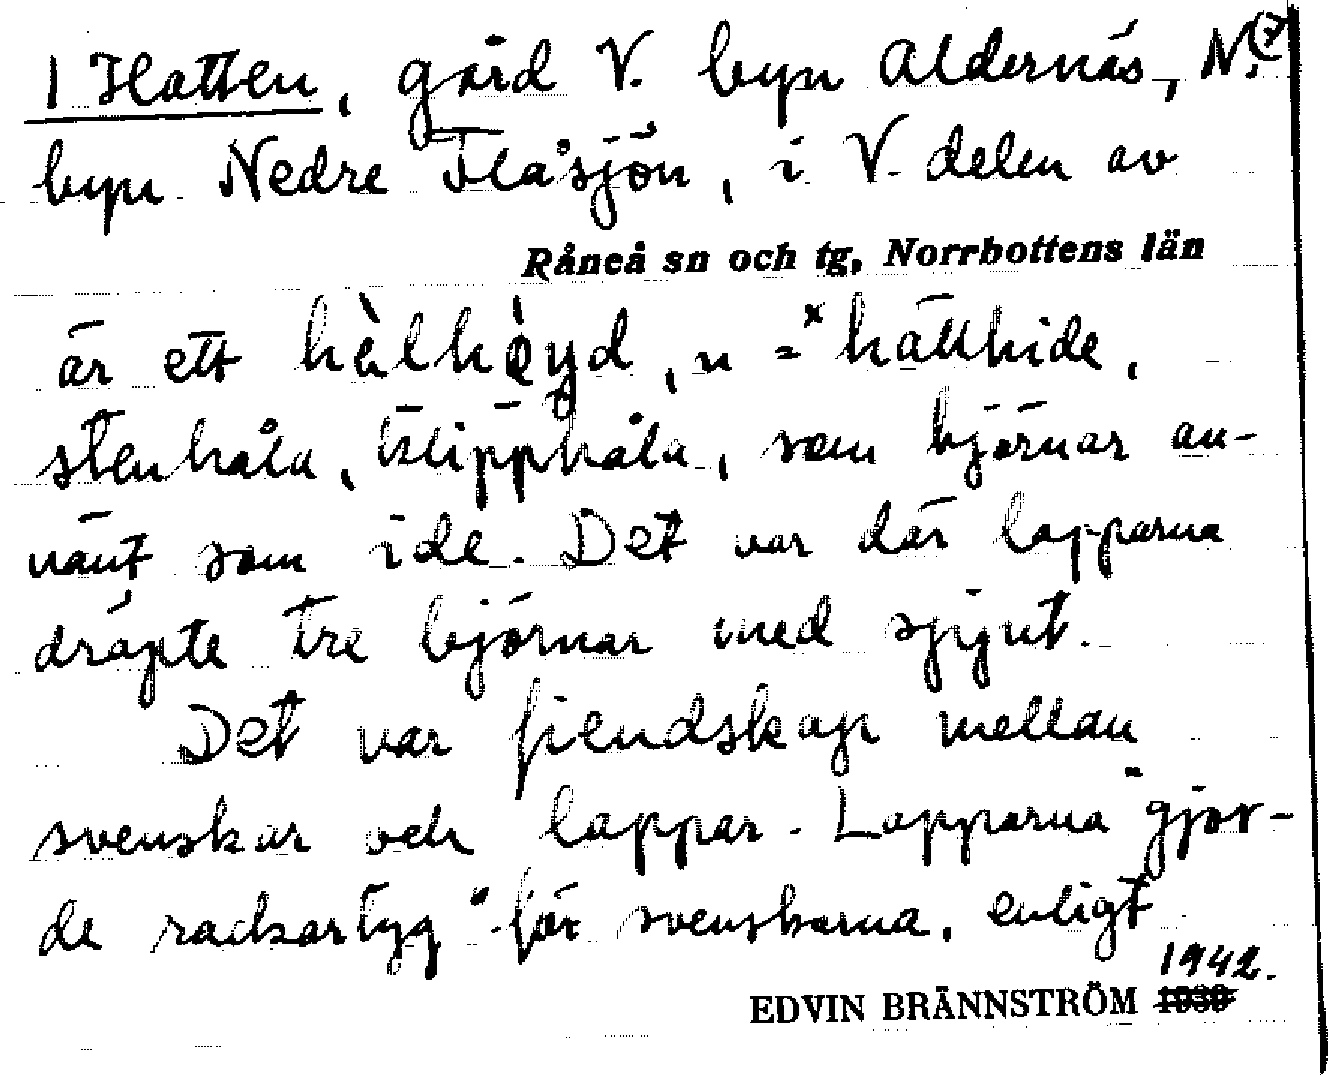 I Hatten, gård V. byn Aldernäs, N.(?)
byn Nedre Flåsjön, i V. delen av
Råneå sn och tg, Norrbottens län
är ett hèlhìyd, n = *hällhide,
stenhåla, klipphåla, som björnar an-
vänt som ide. Det var där lapparna
dräpte tre björnar med spjut.
Det var fiendskap mellan
svenskar och lappar. Lapparna "gjor-
de rackartyg" för svenskarna, enligt
1942.
EDVIN BRÄNNSTRÖM 1939